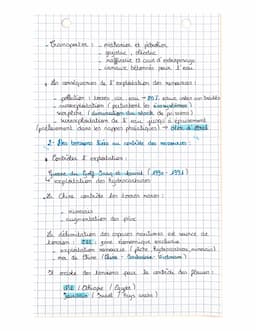 - Transporter : - minéraux et pétrolier
- gazoduc, oléoduc
- raffinerie et cuve d'entreposage
- canaux bétonnés pour l'eau
• Les conséquences de l'exploitation des ressources :
- pollution : terres, air, eau → 80% eaux usées non traitées
- surexploitation : perturbent les écosystèmes
- surpêche (diminution du stock de poissons)
- surexploitation de l'eau jusqu'à épuisement
(prélèvement dans les nappes phréatiques) → Mer d'Aral
2 - Des tensions liées au contrôle des ressources :
• Contrôler l'exploitation :
Guerre du Golf Iraq et Koweït (1990 - 1991)
↳ exploitation des hydrocarbures
• La Chine contrôle les terres rares :
- minerais
- augmentation des prix
• La délimitation des espaces maritimes est source de
tension : ZEE : zone économique exclusive
- exploitation ressources (pêche, hydrocarbures, minerais)
- mer de Chine (Chine - Vietnam)
Il existe des tensions pour le contrôle des fleuves :
Nil (Ethiopie / Egypte)
Jourdain (Israël / Pays arabes)